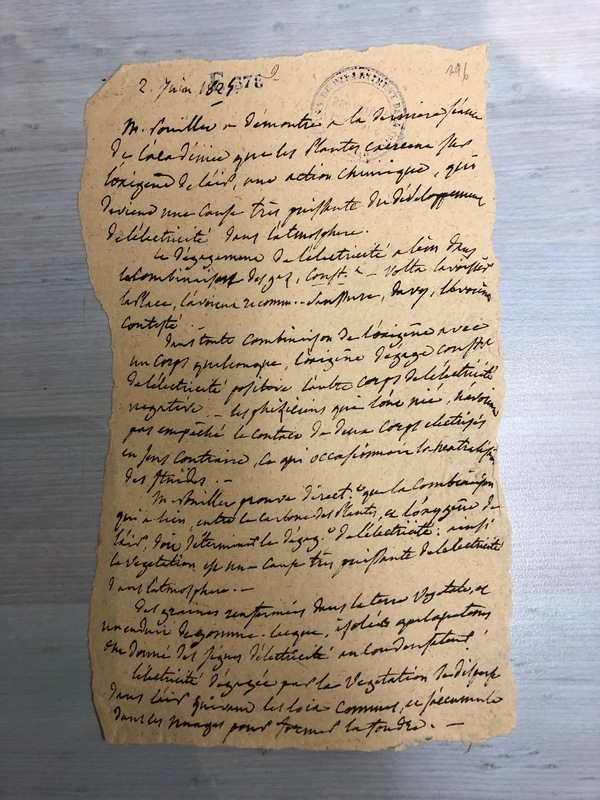 2. Juin 1825.
E 678 9
296
M. Pouillet a démontré a la derniere séance
de l'académie que les plantes exercent sur
l'oxigène de l'air, une action chimique, qui
devient une cause très puissante du développement
de l'électricité dans l'atmosphere.
Le dégagement de l'électricité a lieu dans
la combinaison des gaz, const.t — Volta Lavoisier
la Place, l'avoient reconnu — Saussure, Davy, l'avoient
contesté —
Dans toute combinaison de l'oxigène avec
un corps quelconque, l'oxigène dégage const.t
de l'électricité positive l'autre corps de l'électricité
negative — les phisiciens qui l'ont nié, n'avoient
pas empêché le contact de deux corps électrisés
en sens contraire, ce qui occasionnait la neutralisation
des fluides. —
M. Pouillet prouve direct.t que la combinaison
qui a lieu, entre le carbone des plantes, et l'oxygène de
l'air, doit déterminer le dégag.t de l'électricité; ainsi
la vegetation est une cause très puissante de l'électricité
dans l'atmosphere. —
Des graines renfermées dans la terre végétale, et
un enduit de gomme-lacque, isolé
ont donné des signes d'électricité au condensateur.
L'électricité dégagée par la végétation se disperse
dans l'air suivant les loix communes, et s'accumule
dans les nuages pour former la foudre. —